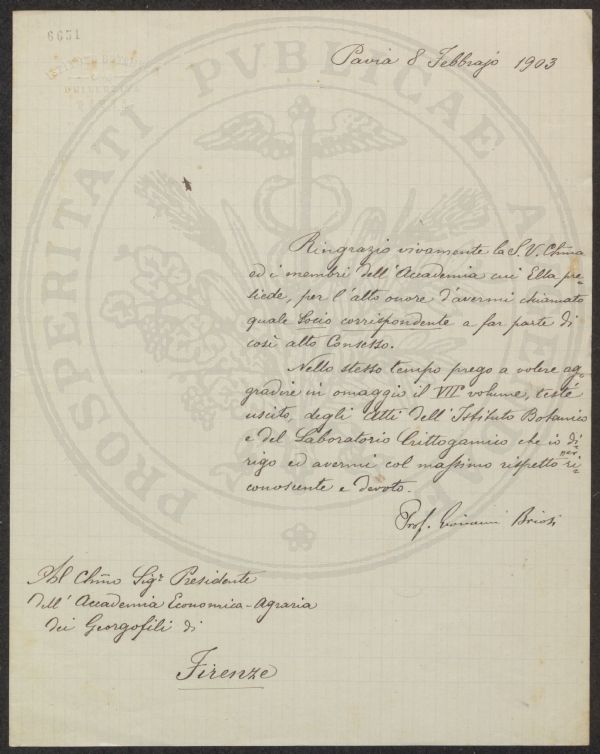 6651
Pavia 8 Febbrajo 1903
PROSPERITATI PVBLICAE
Ringrazio vivamente la S. V. Chma
ed i membri dell'Accademia cui Ella pre-
siede, per l'alto onore d'avermi chiamato
quale Socio corrispondente a far parte di
così alto Consesso.
Nello stesso tempo prego a volere ag-
gradire in omaggio il VII° volume, testé
uscito, degli Atti dell'Istituto Botanico
e del Laboratorio Crittogamico che io di-
rigo ed avermi col massimo rispetto per ri-
conoscente e devoto.
Prof. Giovanni Briosi
Al Chmo Sigr Presidente
dell'Accademia Economica-Agraria
dei Georgofili di
Firenze